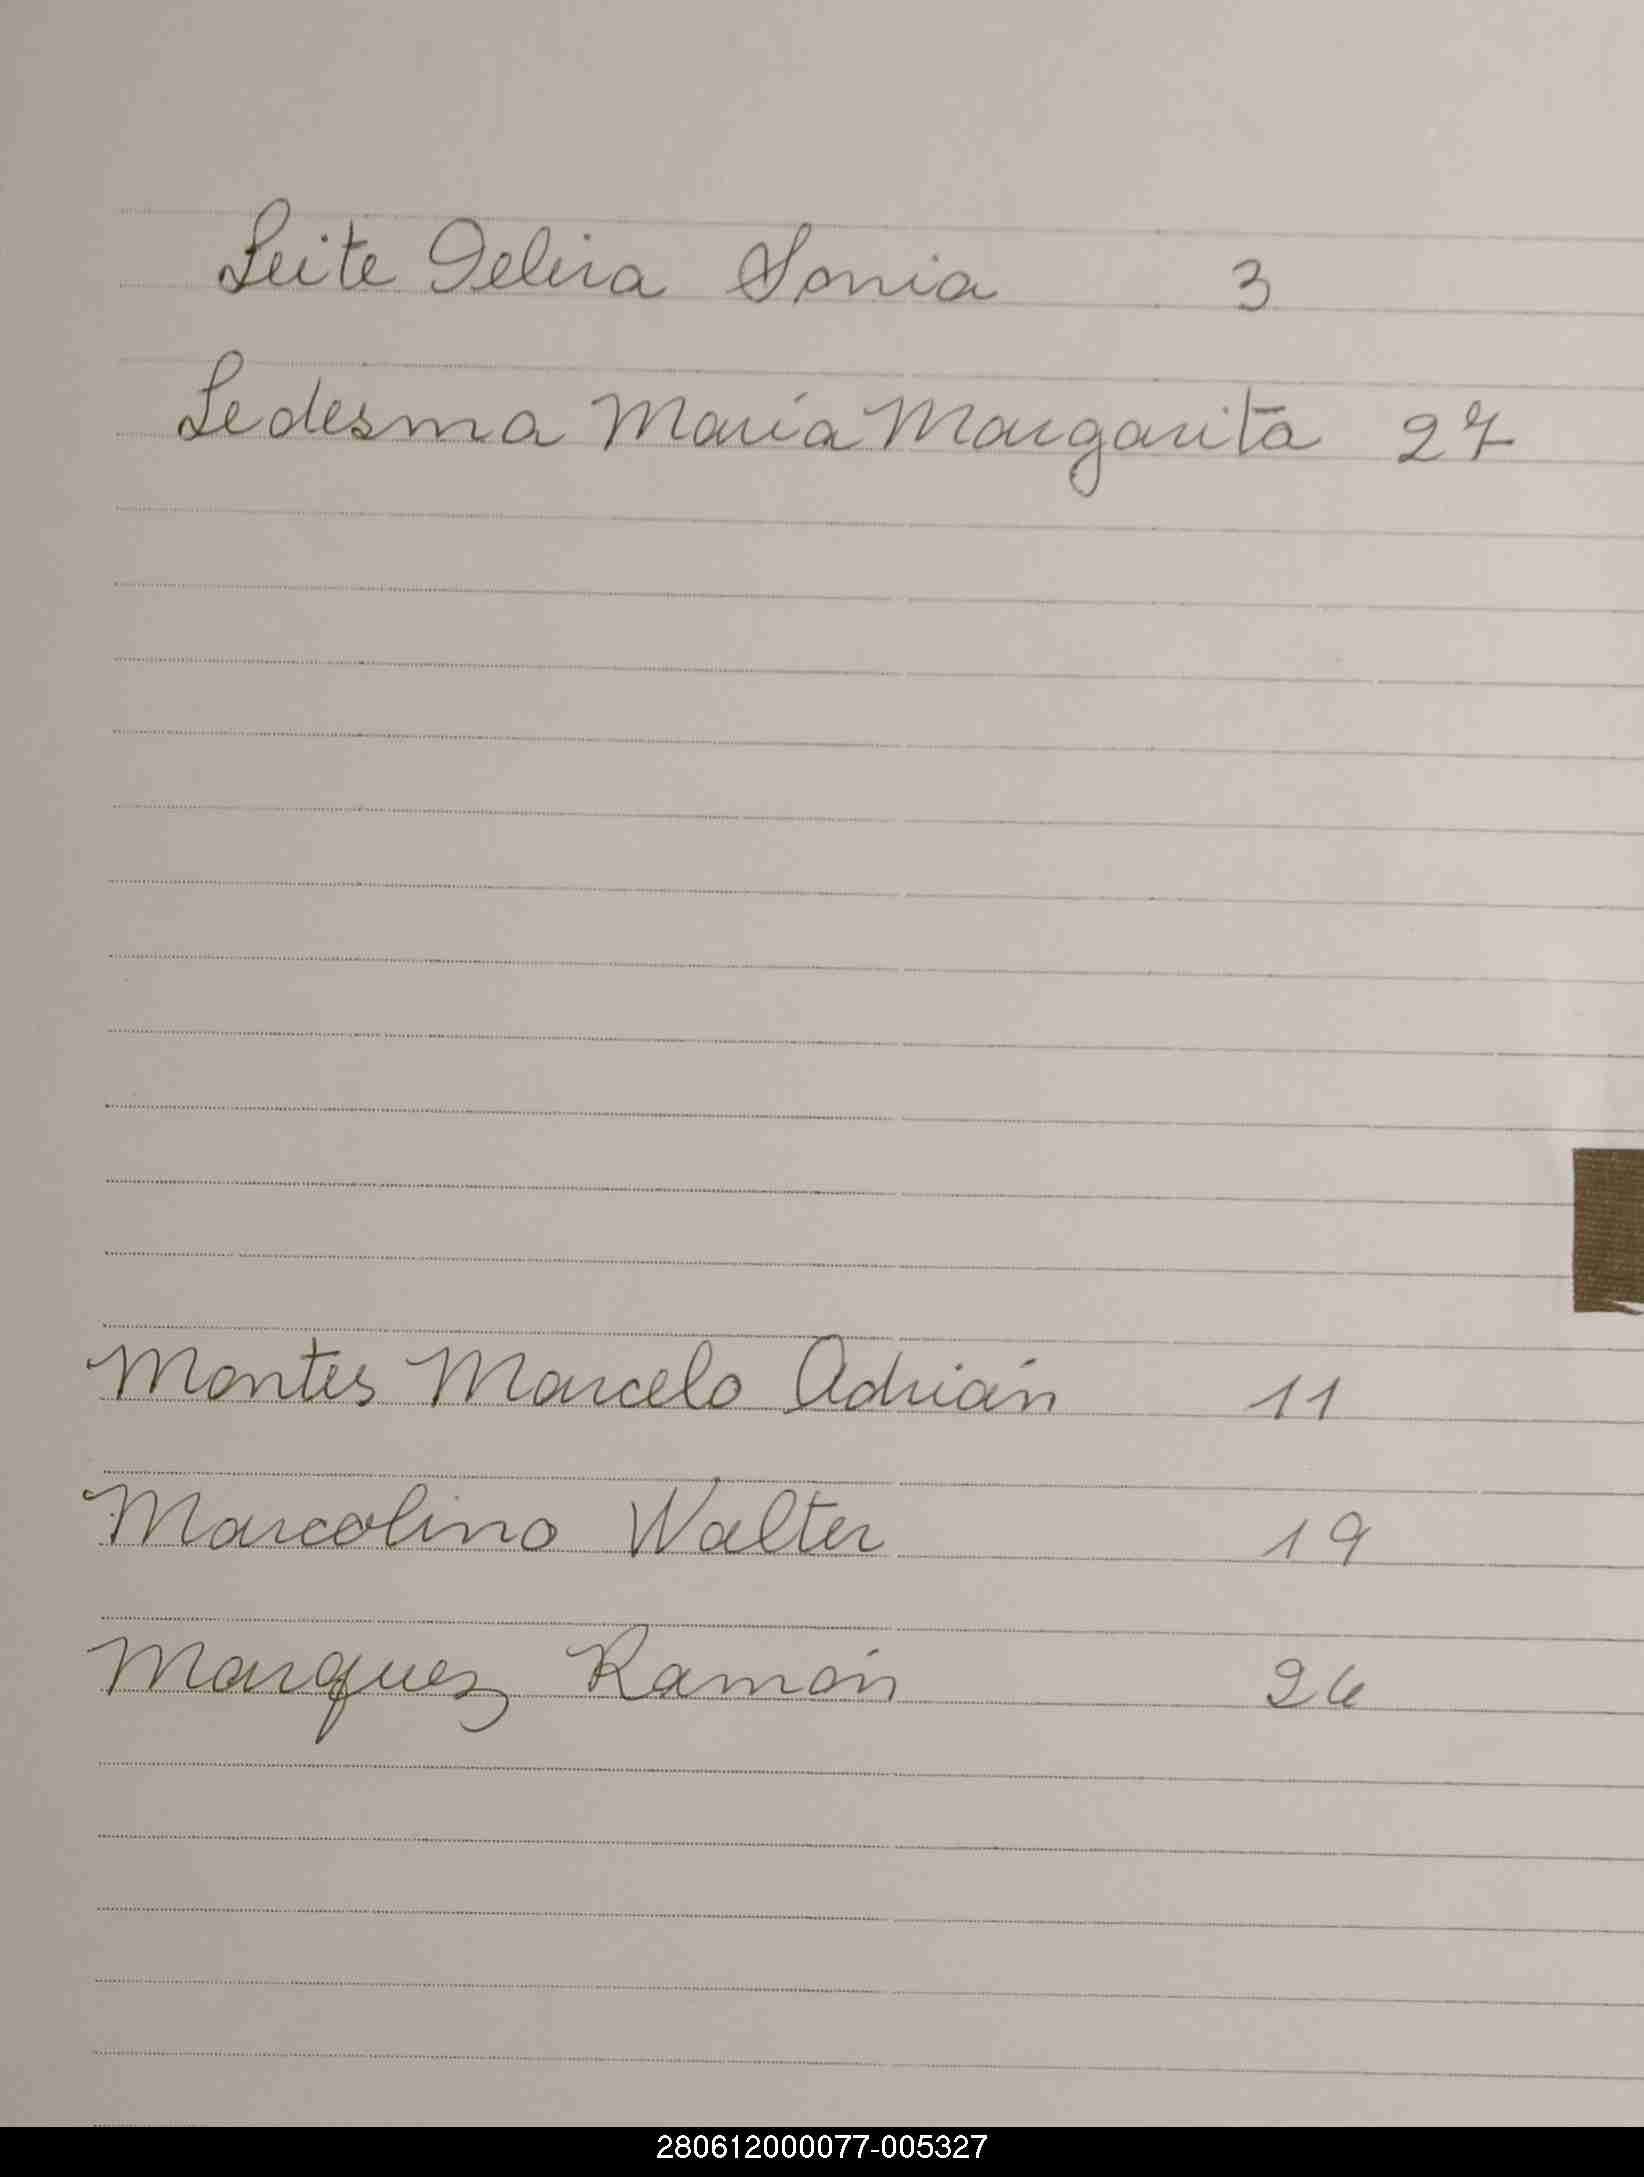 Leite Delira Sonia 3
Ledesma María Margarita 27
Montes Marcelo Adrián 11
Marcolino Walter 19
Marquez Ramón 26
280612000077-005327